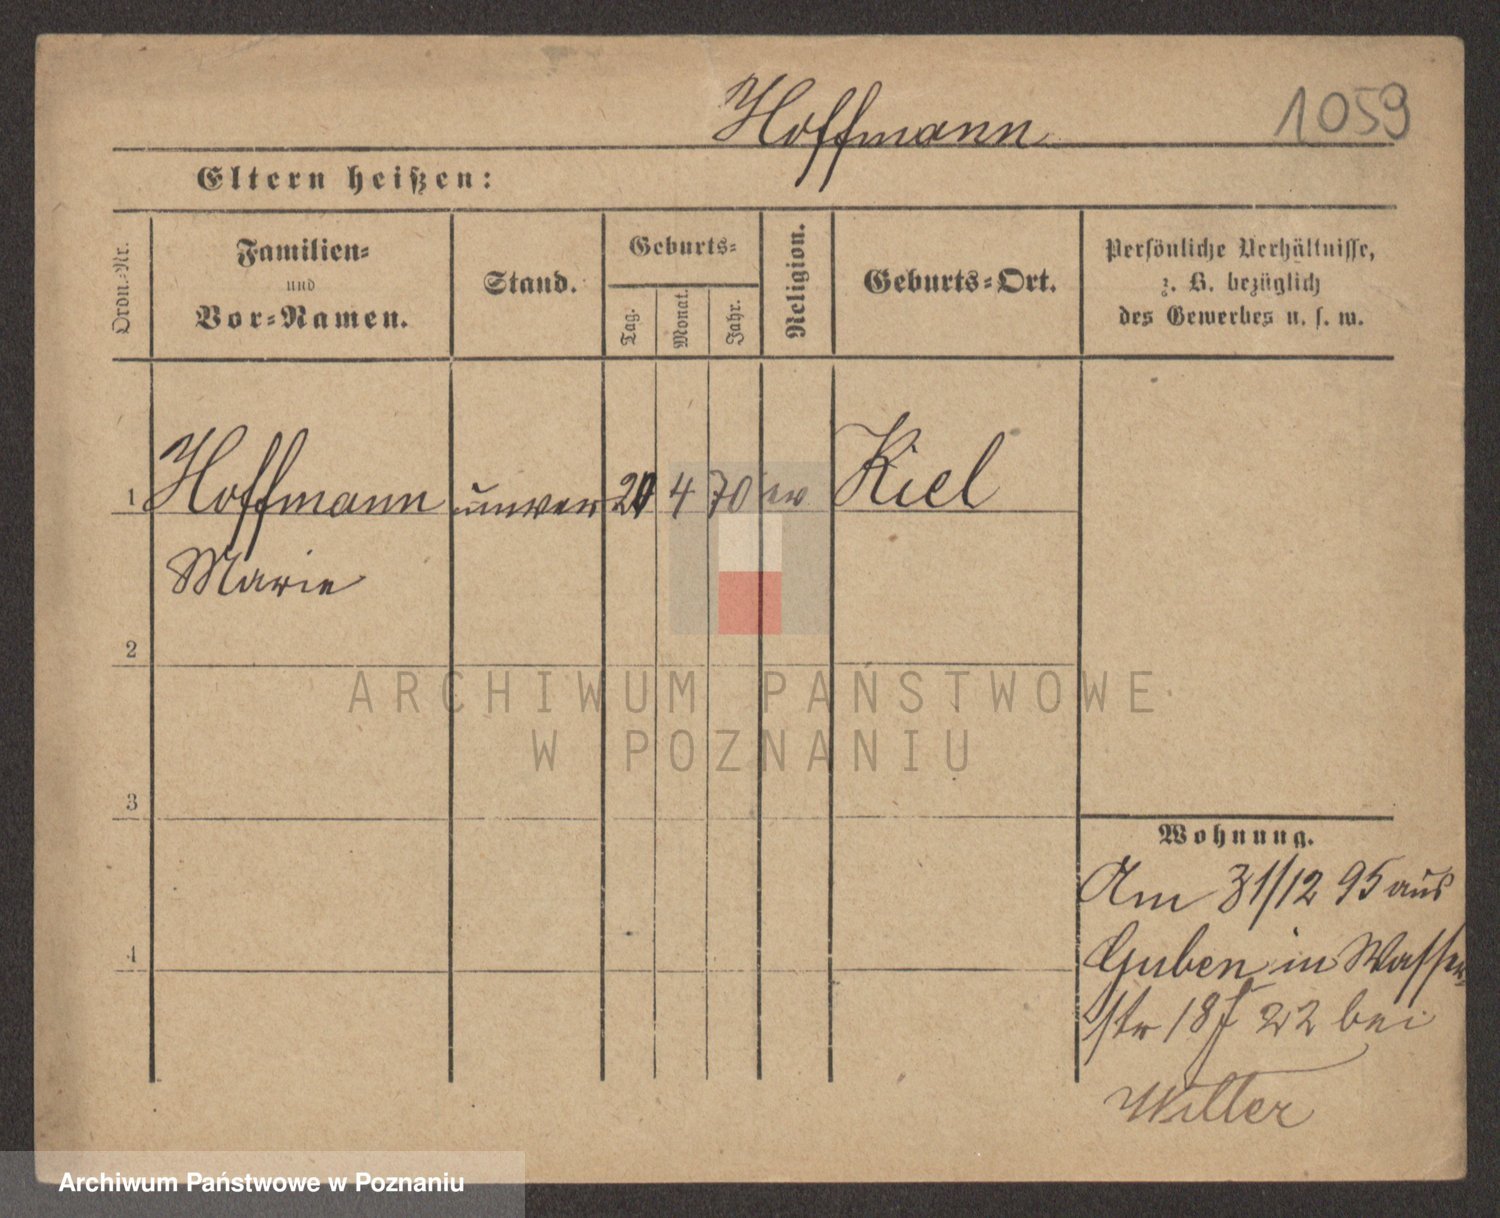 Hoffmann 1059
Eltern heißen:
Ordn.-Nr. Familien- und Vor-Namen. Stand. Geburts- Tag. Monat. Jahr. Religion. Geburts-Ort. Persönliche Verhältnisse, z. B. bezüglich des Gewerbes u. s. w.
1 Hoffmann unver 4 70 ev Kiel
Marie
2
ARCHIWUM PAŃSTWOWE
W POZNANIU
3
Wohnung.
Am 31/12 95 aus
Guben in Wasser
4
str 18 22 bei
Witter
Archiwum Państwowe w Poznaniu